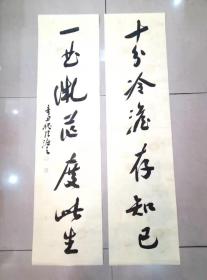 十分冷澹存知己
一曲微茫度此生